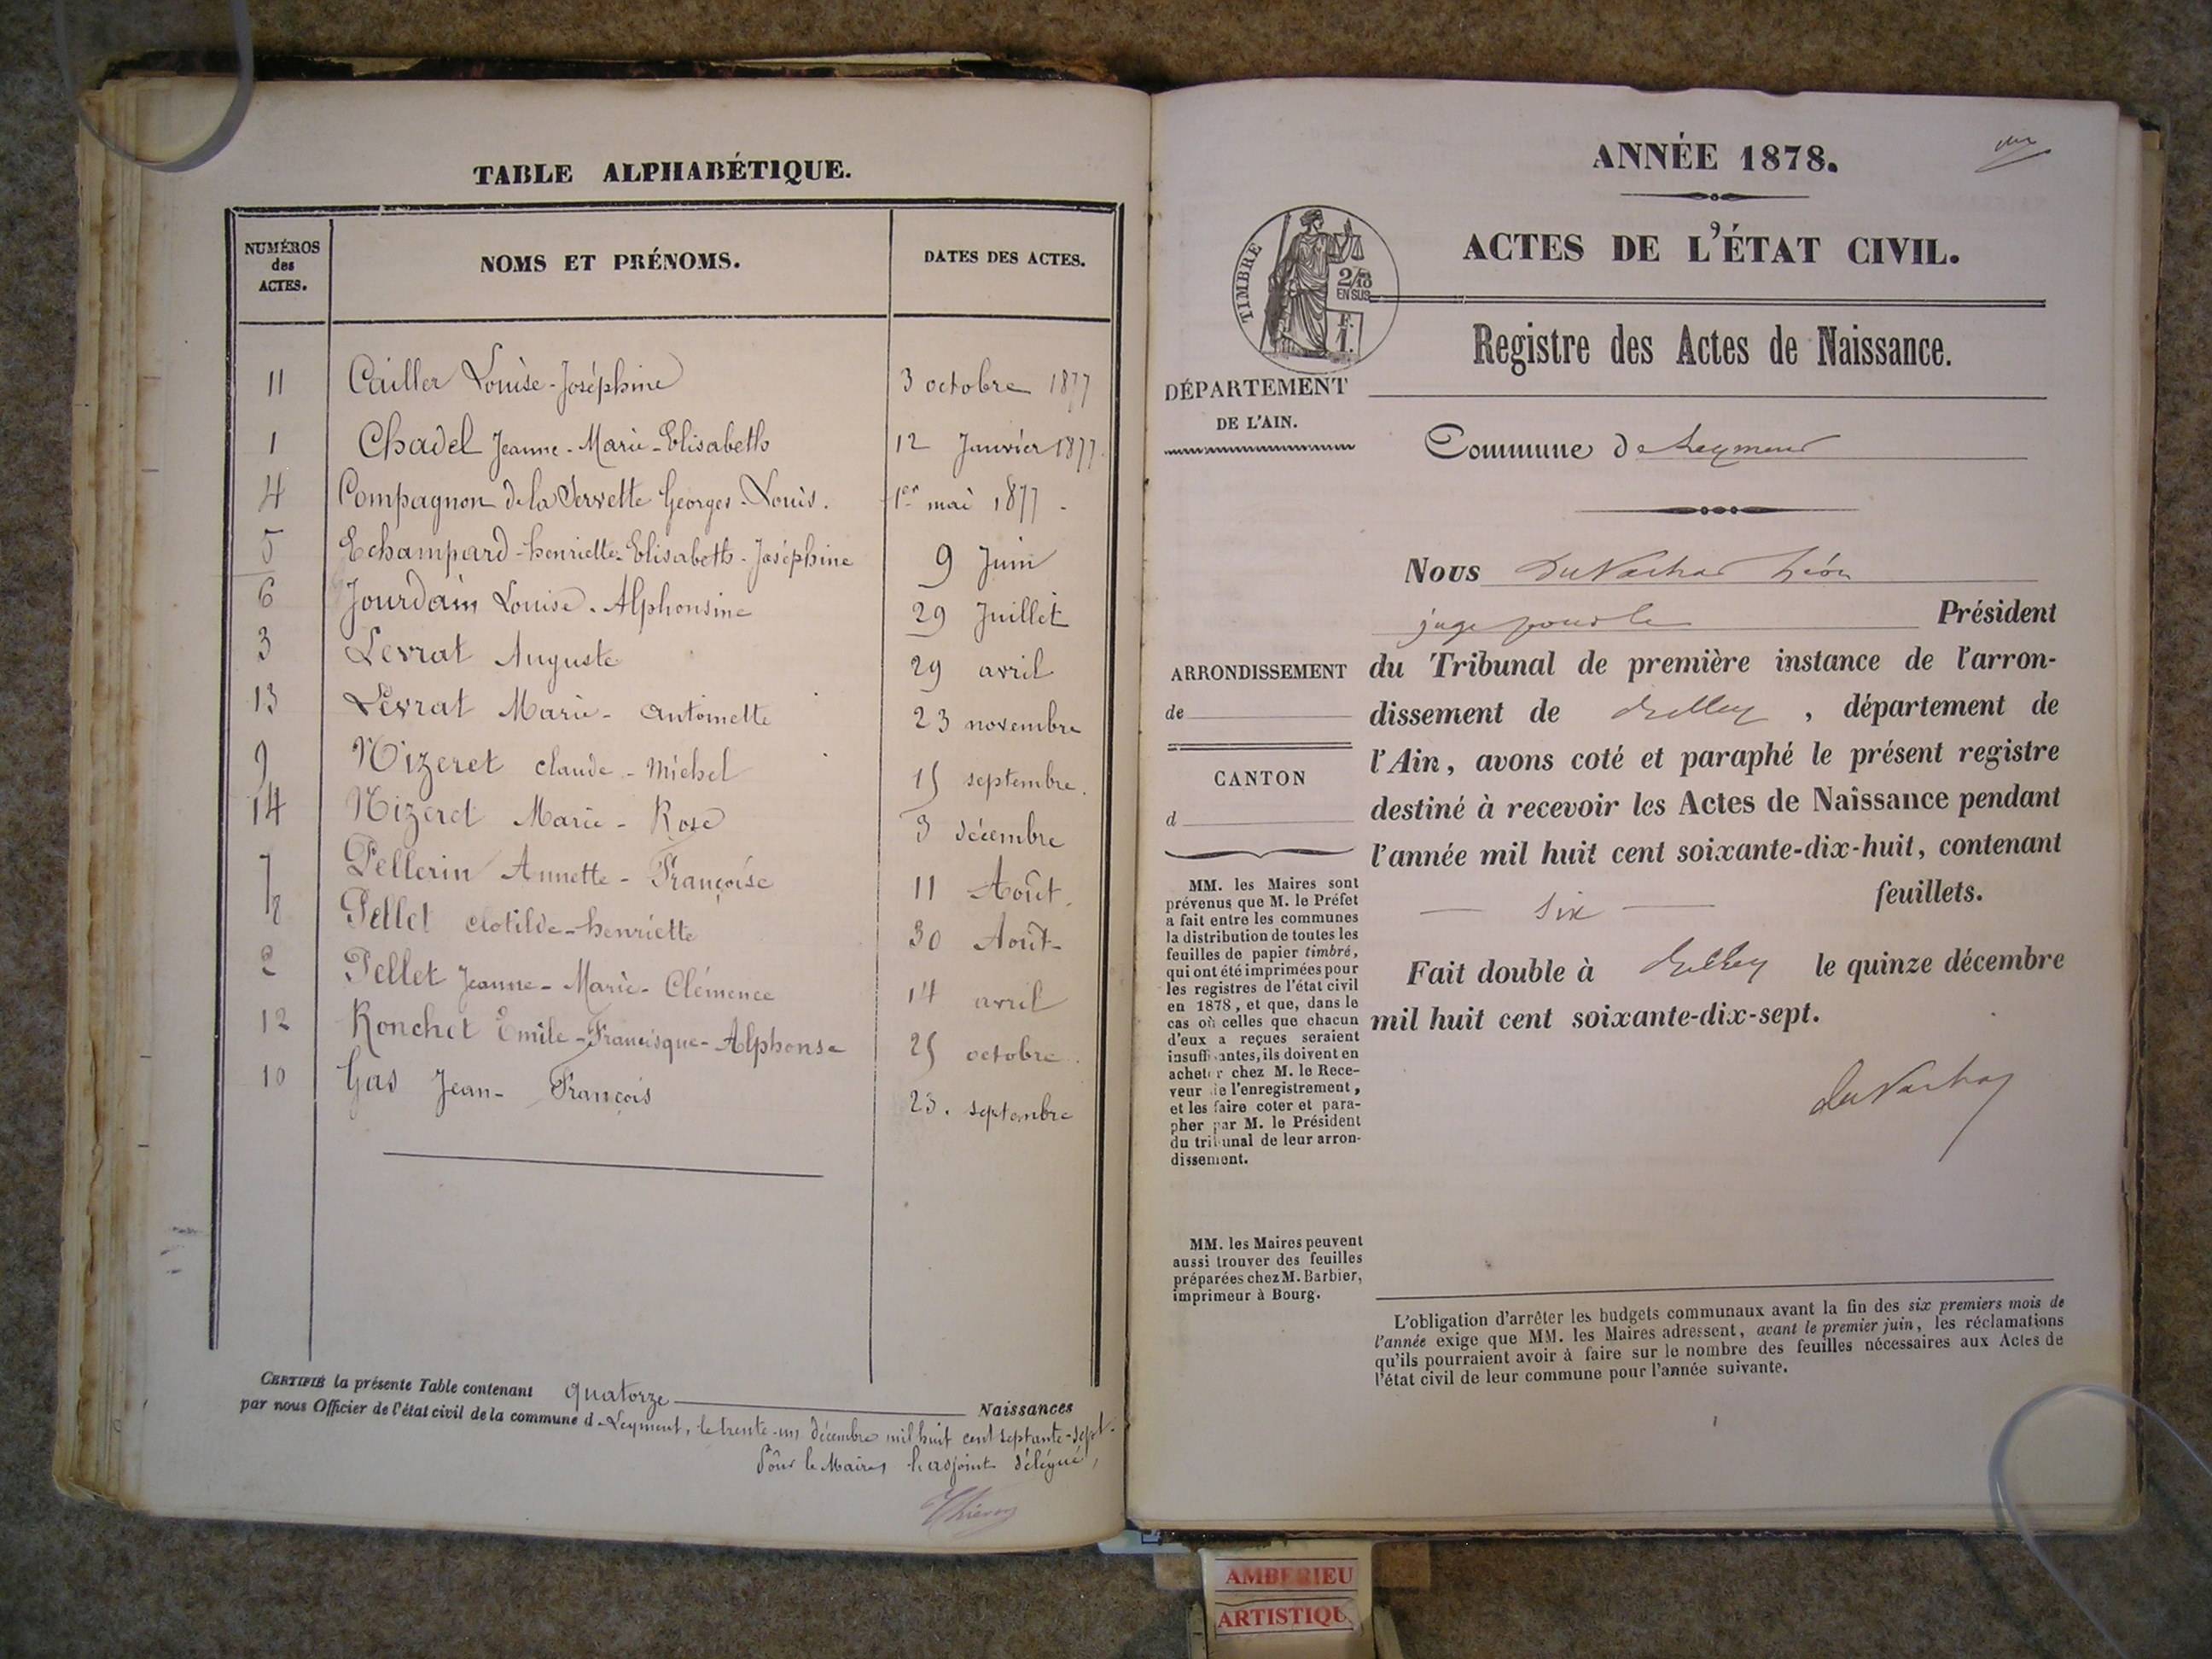 TABLE ALPHABÉTIQUE.
NUMÉROS des ACTES. NOMS ET PRÉNOMS. DATES DES ACTES.
11 Cailler Louise-Joséphine 3 octobre 1877
1 Chadel Jeanne-Marie-Elisabeth 12 Janvier 1877.
4 Compagnon de la Servette Georges-Louis. 1er mai 1877.
5 Echampard-henriette-Elisabeth-Joséphine 9 Juin
6 Jourdain Louise-Alphonsine 29 Juillet
3 Levrat Auguste 29 avril
13 Levrat Marie-antoinette 23 novembre
9 Nizeret claude-Michel 15 septembre.
14 Nizeret Marie-Rose 3 décembre
7 Pellerin Annette-Françoise 11 Août.
8 Pellet Clotilde-henriette 30 Août-
2 Pellet Jeanne-Marie-Clémence 14 avril
12 Ronchet Emile-Francisque-Alphonse 25 octobre.
10 Gas Jean-François 23. septembre
CERTIFIÉ la présente Table contenant quatorze Naissances
par nous Officier de l'état civil de la commune d Leyment, le trente-un décembre mil huit cent septante-sept.
Pour le Maire, l'adjoint délégué,
ANNÉE 1878.
ACTES DE L'ÉTAT CIVIL.
TIMBRE
2/10
EN SUS
F.
1.
Registre des Actes de Naissance.
DÉPARTEMENT
DE L'AIN.
Commune de Leyment
Nous
juge pour le Président
ARRONDISSEMENT
de
CANTON
d
du Tribunal de première instance de l'arron-
dissement de Belley, département de
l'Ain, avons coté et paraphé le présent registre
destiné à recevoir les Actes de Naissance pendant
l'année mil huit cent soixante-dix-huit, contenant
— six — feuillets.
Fait double à Belley le quinze décembre
mil huit cent soixante-dix-sept.
MM. les Maires sont
prévenus que M. le Préfet
a fait entre les communes
la distribution de toutes les
feuilles de papier timbré,
qui ont été imprimées pour
les registres de l'état civil
en 1878, et que, dans le
cas où celles que chacun
d'eux a reçues seraient
insuffisantes, ils doivent en
acheter chez M. le Rece-
veur de l'enregistrement,
et les faire coter et para-
pher par M. le Président
du tribunal de leur arron-
dissement.
MM. les Maires peuvent
aussi trouver des feuilles
préparées chez M. Barbier,
imprimeur à Bourg.
L'obligation d'arrêter les budgets communaux avant la fin des six premiers mois de
l'année exige que MM. les Maires adressent, avant le premier juin, les réclamations
qu'ils pourraient avoir à faire sur le nombre des feuilles nécessaires aux Actes de
l'état civil de leur commune pour l'année suivante.
AMBERIEU
ARTISTIQU